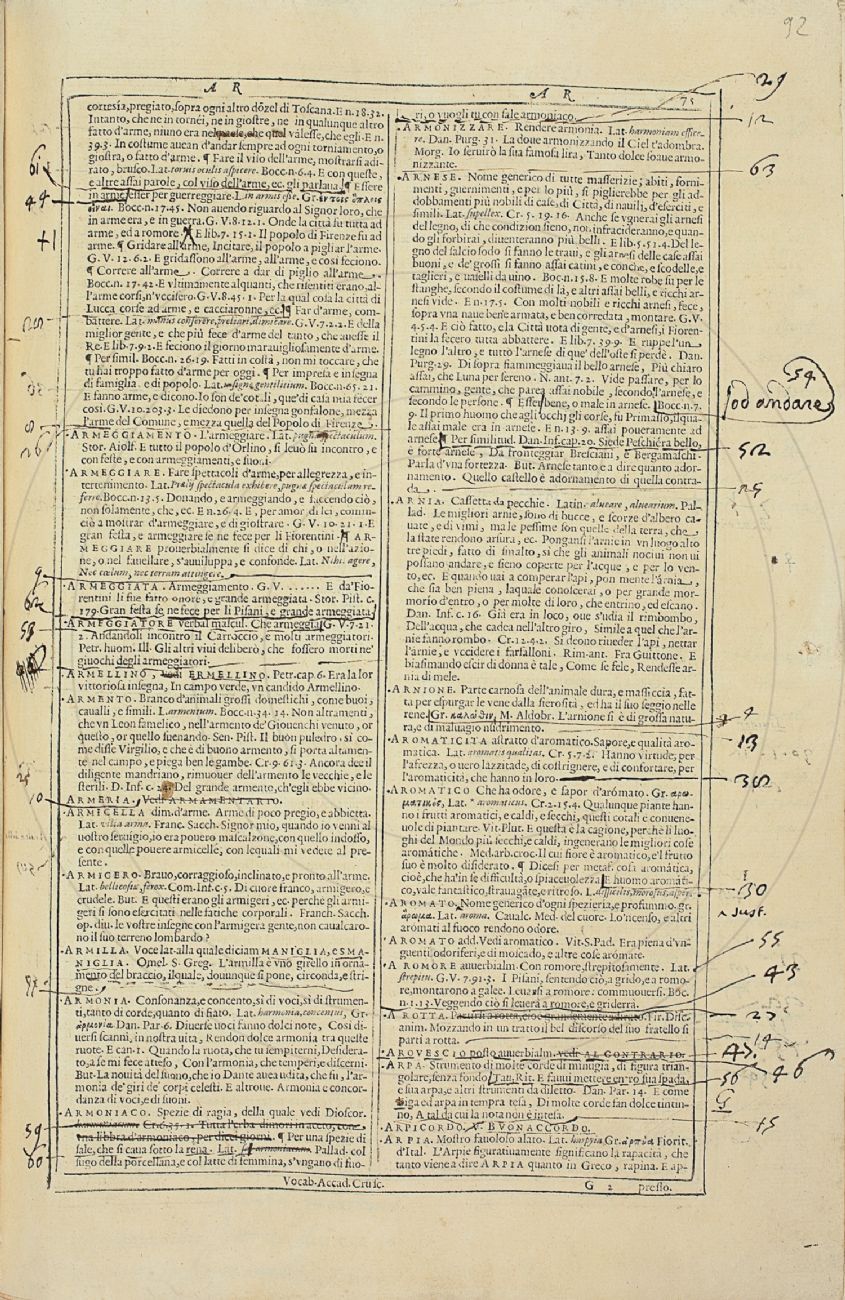 92
A R
A R
75
cortesia, pregiato, sopra ogni altro dōzel di Toscana. E n. 18. 32.
Intanto, che ne in tornéi, ne in giostre, ne in qualunque altro
fatto d'arme, niuno era nel valesse, che egli. E n.
39. 3. In costume auean d'andar sempre ad ogni torniamento, o
giostra, o fatto d'arme. ¶ Fare il viso dell'arme, mostrarsi adi-
rato, brusco. Lat. toruis oculis aspicere. Bocc. n. 6. 4. E con queste,
e altre assai parole, col viso dell'arme, ec. gli parlaua. ¶ Essere
in arme, esser per guerreggiare. L. in armis esse. Gr.
Bocc. n. 17. 45. Non auendo riguardo al Signor loro, che
in arme era, e in guerra. G. V. 8. 12. 1. Onde la città fu tutta ad
arme, ed a romore. E lib. 7. 15. 1. Il popolo di Firenze fu ad
arme. ¶ Gridare all'arme, Incitare, il popolo a pigliar l'arme.
G. V. 12. 6. 2. E gridassono all'arme, all'arme, e così feciono.
¶ Correre all'arme. Correre a dar di piglio all'arme.
Bocc. n. 17. 42. E vltimamente alquanti, che risentiti erano, al-
l'arme corsi, n'vccisero. G. V. 8. 45. 1. Per la qual cosa la città di
Lucca corse ad arme, e cacciaronne, ec. ¶ Far d'arme, com-
battere. Lat. manus conserere, preliari, dimicare. G. V. 7. 2. 2. E della
miglior gente, e che più fece d'arme del tanto, che auesse il
Re. E lib. 7. 9. 2. E feciono il giorno marauigliosamente d'arme.
¶ Per simil. Bocc. n. 26. 19. Fatti in costà, non mi toccare, che
tu hai troppo fatto d'arme per oggi. ¶ Per impresa e insegna
di famiglia, e di popolo. Lat. insigne gentilitium. Bocc. n. 65. 21.
E fanno arme, e dicono. Io son de' cotali, que' di casa mia fecer
così. G. V. 10. 203. 3. Le diedono per insegna gonfalone, mezza
l'arme del Comune, e mezza quella del Popolo di Firenze.
ARMEGGIAMENTO. L'armeggiare. Lat. spectaculum.
Stor. Aiolf. E tutto il popolo d'Orlino, si leuò su incontro, e
con feste, e con armeggiamenti, e suoni.
ARMEGGIARE. Fare spettacoli d'arme, per allegrezza, e in-
tertenimento. Lat. spectacula exhibere, pugnæ spectaculum re-
ferre. Bocc. n. 13. 5. Donando, e armeggiando, e faccendo ciò,
non solamente, che, ec. E n. 26. 4. E, per amor, di lei, comin-
ciò a mostrar d'armeggiare, e di giostrare. G. V. 10. 21. 1. E
gran festa, e armeggiare se ne fece per li Fiorentini. ¶ AR-
MEGGIARE prouerbialmente si dice di chi, o nell'azio-
ne, o nel fauellare, s'auuiluppa, e confonde. Lat. Nihil agere,
Nec cælum, nec terram attingere.
ARMEGGIATA. Armeggiamento. G. V. ...... E da' Fio-
rentini li fue fatto onore, e grande armeggiata. Stor. Pist. c.
179. Gran festa se ne fece per li Pisani, e grande armeggiata
ARMEGGIATORE verbal mascul. Che armeggia. G. V. 7. 21.
2. Andandoli incontro il Carroccio, e molti armeggiatori.
Petr. huom. Ill. Gli altri viui deliberò, che fossero morti ne'
giuochi degli armeggiatori.
ARMELLINO, vedi ERMELLINO. Petr. cap. 6. Era la lor
vittoriosa insegna, In campo verde, vn candido Armellino.
ARMENTO. Branco d'animali grossi domestichi, come buoi,
caualli, e simili. L. armentum. Bocc. n. 34. 14. Non altramenti,
che vn Leon famelico, nell'armento de' Giouenchi venuto, or
questo, or quello suenando. Sen. Pist. Il buon puledro, sì co-
me disse Virgilio, e che è di buono armento, si porta altamen-
te nel campo, e piega ben le gambe. Cr. 9. 61. 3. Ancora dee il
diligente mandriano, rimuouer dell'armento le vecchie, e le
sterili. D. Inf. c. Del grande armento, ch'egli ebbe vicino.
ARMERIA. Vedi ARMAMENTARIO.
ARMICELLA dim. d'arme. Arme di poco pregio, e abbietta.
Lat. vilia arma. Franc. Sacch. Signor mio, quando io venni al
vostro seruigio, io era pouero mascalzone, con quello indosso,
e con quelle pouere armicelle, con lequali mi vedete al pre-
sente.
ARMIGERO. Brauo, corraggioso, inclinato, e pronto all'arme.
Lat. bellicosus, ferox. Com. Inf. c. 5. Di cuore franco, armigero, e
crudele. But. E questi erano gli armigeri, ec. perche gli armi-
geri si sono esercitati nelle fatiche corporali. Franch. Sacch.
op. diu. le vostre insegne con l'armigera gente, non caualcaro-
no il suo terreno lombardo?
ARMILLA. Voce lat. alla quale diciam MANIGLIA, e SMA-
NIGLIA. Omel. S. Greg. L'armilla è vno girello in orna-
mento del braccio, il quale, douunque si pone, circonda, e stri-
gne.
ARMONIA. Consonanza, e concento, sì di voci, sì di strumen-
ti, tanto di corde, quanto di fiato. Lat. harmonia, concentus, Gr.
ἁρμονία Dan. Par. 6. Diuerse voci fanno dolci note, Così di-
uersi scanni, in nostra vita, Rendon dolce armonia tra queste
ruote. E can. 1. Quando la ruota, che tu sempiterni, Desidera-
to, a se mi fece atteso, Con l'armonia, che temperi, e discerni.
But. La nouità del suono, che io Dante aueua udita, che fu, l'ar-
monia de' giri de' corpi celesti. E altroue. Armonia e concor-
danza di voci, e di suoni.
ARMONIACO. Spezie di ragia, della quale vedi Dioscor.
Cr. 6. 35. 1. Tutta l'erba dimori in aceto, con
vna libbra d'armoniaco, per dieci giorni. ¶ Per una spezie di
sale, che si caua sotto la rena. Lat. armoniacum. Pallad. col
sugo della porcellana, e col latte di femmina, s'vngano di fuo-
ri, o vuogli tu con sale armoniaco.
ARMONIZZARE. Rendere armonia. Lat. harmoniam effice-
re. Dan. Purg. 31. La doue armonizzando il Ciel t'adombra.
Morg. Io seruirò la sua famosa lira, Tanto dolce soaue armo-
nizzante.
ARNESE. Nome generico di tutte masserizie; abiti, forni-
menti, guernimenti, e per lo più, si piglierebbe per gli ad-
dobbamenti più nobili di case, di Città, di nauili, d'eserciti, e
simili. Lat. supellex. Cr. 5. 19. 16. Anche se vgnerai gli arnesi
del legno, di che condizion sieno, non infracideranno, e quan-
do gli forbirai, diuenteranno più belli. E lib. 5. 51. 4. Del le-
gno del salcio sodo si fanno le traui, e gli arnesi delle case assai
buoni, e de' grossi si fanno assai catini, e conche, e scodelle, e
taglieri, e vaselli da vino. Bocc. n. 15. 8. E molte robe su per le
stanghe, secondo il costume di là, e altri assai belli, e ricchi ar-
nesi vide. E n. 17. 5. Con molti nobili e ricchi arnesi, fece,
sopra vna naue bene armata, e ben corredata, montare. G. V.
4. 5. 4. E ciò fatto, e la Città vota di gente, e d'arnesi, i Fioren-
tini la fecero tutta abbattere. E lib. 7. 39. 9. E ruppel'un
legno l'altro, e tutto l'arnese di que' dell'oste si perdè. Dan.
Purg. 29. Di sopra fiammeggiaua il bello arnese, Più chiaro
assai, che Luna per sereno. N. ant. 7. 2. Vide passare, per lo
cammino, gente, che parea assai nobile, secondo l'arnese, e
secondo le persone. ¶ Esser bene, o male in arnese. Bocc. n. 7.
9. Il primo huomo che agli occhi gli corse, fu Primasso, il qua-
le assai male era in arnese. E n. 13. 9. assai poueramente ad
arnese. ¶ Per similitud. Dan. Inf. cap. 20. Siede Peschiera bello,
e forte arnese, Da fronteggiar Bresciani, e Bergamaschi.
Parla d'vna fortezza. But. Arnese tanto è a dire quanto ador-
namento. Quello castello è adornamento di quella contra-
da.
ARNIA. Cassetta da pecchie. Latin. alueare, aluearium. Pal-
lad. Le migliori arnie, sono di bucce, e scorze d'albero ca-
uate, e di vimi, ma le pessime son quelle della terra, che
la state rendono arsura, ec. Pongansi l'arnie in vn luogo alto
tre piedi, fatto di smalto, sì che gli animali nociui non vi
possano andare, e sieno coperte per l'acque, e per lo ven-
to, ec. E quando vai a comperar l'api, pon mente l'arnia,
che sia ben piena, laquale conoscerai, o per grande mor-
morio d'entro, o per molte di loro, che entrino, ed escano.
Dan. Inf. c. 16. Già era in loco, oue s'udia il rimbombo,
Dell'acqua, che cadea nell'altro giro, Simile a quel che l'ar-
nie fanno rombo. Cr. 12. 4. 2. Si deono riueder l'api, nettar
l'arnie, e vccidere i farfalloni. Rim. ant. Fra Guittone. E
biasimando escir di donna è tale, Come se fele, Rendesse ar-
nia di mele.
ARNIONE. Parte carnosa dell'animale dura, e massiccia, fat-
ta per espurgar le vene dalla sierosità, ed ha il suo seggio nelle
rene. Gr. M. Aldobr. L'arnione si è di grossa natu-
ra, e di maluagio nudrimento.
AROMATICITA astratto d'aromatico. Sapore, e qualità aro-
matica. Lat. aromatis qualitas. Cr. 5. 7. 2. Hanno virtude, per
l'afrezza, o vero lazzitade, di costrignere, e di confortare, per
l'aromaticità, che hanno in loro.
AROMATICO Che ha odore, e sapor d'aròmato. Gr. ἀρω-
ματικός, Lat. aromaticus. Cr. 2. 15. 4. Qualunque piante han-
no i frutti aromatici, e caldi, e secchi, questi cotali è conuene-
uole di piantare. Vit. Plut. E questa è la cagione, perchè li luo-
ghi del Mondo più secchi, e caldi, ingenerano migliori cose
aromátiche. Med. arb. croc. Il cui fiore è aromatico, e'l frutto
suo è molto disiderato. ¶ Dicesi per metaf. cosa aromàtica,
cioè, che ha in se difficultà, o spiaceuolezza. E huomo aromáti-
co, vale fantastico, strauagāte, e ritroso. L. difficilis, morosus, asper.
AROMATO. Nome generico d'ogni spezieria, e profummo. gr.
ἄρωμα. Lat. aroma. Caualc. Med. del cuore. Lo'ncenso, e altri
aromati al fuoco rendono odore.
AROMATO add. Vedi aromatico. Vit. S. Pad. Era piena d'vn-
guenti odoriferi, e di moscado, e altre cose aromate.
A ROMORE auuerbialm. Con romore, strepitosamente. Lat.
strepitu. G. V. 7. 91. 3. I Pisani, sentendo ciò, a grido, e a romo-
re, montarono a galee. Leuarsi a romore: commuouersi. Boc.
n. 1. 13. Veggendo ciò si leuerà a romore, e griderrà.
A ROTTA. Patirsi a rotta, cioè grandemente adirato. Fir. Disc.
anim. Mozzando in un tratto il bel discorso del suo fratello si
partì a rotta.
AROVESCIO posto auuerbialm. vedi AL CONTRARIO.
ARPA. Strumento di molte corde di minugia, di figura trian-
golare, senza fondo. Tau. Rit. E fauui mettere entro sua spada,
e sua arpa, e altri strumenti da diletto. Dan. Par. 14. E come
giga ed arpa in tempra tesa, Di molte corde fan dolce tintin-
no, A tal da cui la nota non è intesa.
ARPICORDO. V. BUONACCORDO.
ARPIA. Mostro fauoloso alato. Lat. harpyia, Gr. ἅρπυια Fiorit.
d'Ital. L'Arpie figuratiuamente significano la rapacità, che
tanto viene a dire ARPIA quanto in Greco, rapina. E ap-
Vocab. Accad. Crusc.
G 2
presso.
61
44
41
8
26
9
62
58
10
59
60
29
12
63
54
sod andare
52
25
4
13
38
30
iust.
55
43
27
14
47
56
46
G
15